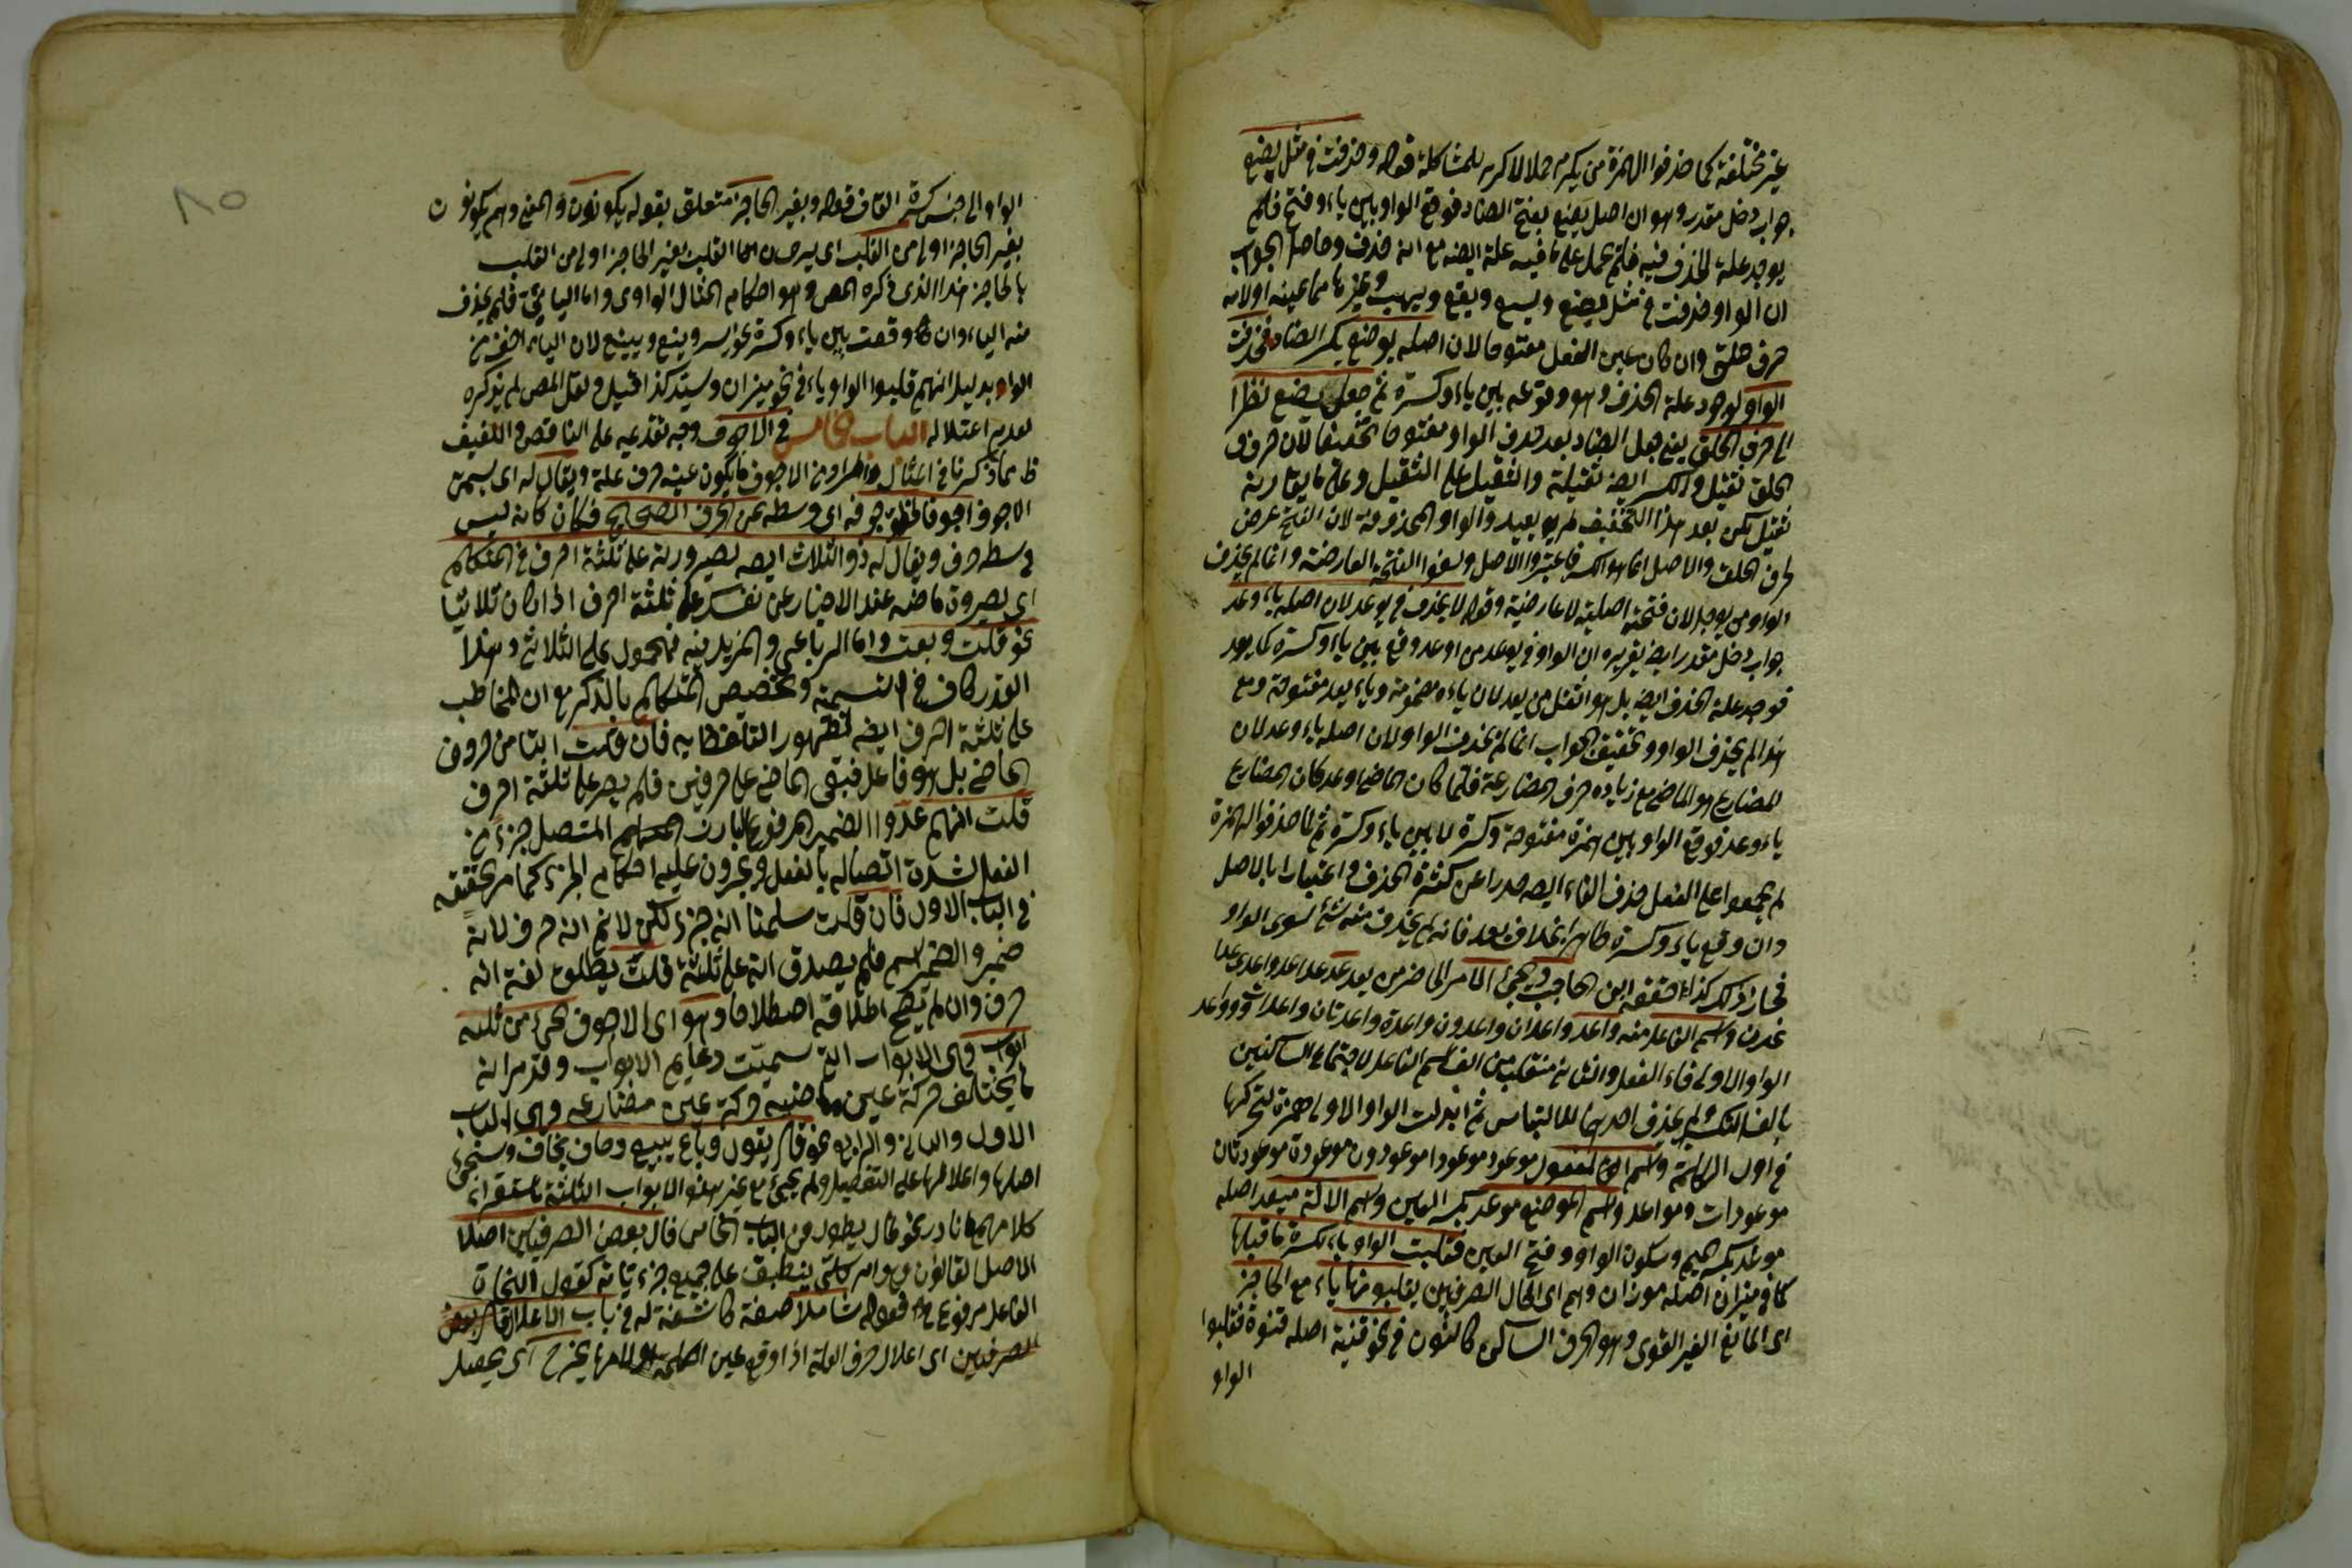 غير مختلفة كما حذفوا الهمزة من يكرم حملا لاكرم للمشاكلة قوله وحذفت في مثل يضع
جواب دخل مقدر وهو ان اصل يضع يوضع بفتح الضاد فوقع الواو بين ياء وفتح فلم
يوجد علة الحذف فيه فلم يحمل على ما فيه علة ايضه مع انه حذف وحاصل الجواب
ان الواو حذفت في مثل يضع ويسع ويقع ويهب وغيرها مما عينه او لامه
حرف حلق وان كان عين الفعل مفتوحا لان اصله يوضع بكسر الضاد فحذفت
الواو لوجود علة الحذف وهو وقوعه بين ياء وكسرة ثم جعل يضع نظرا
الى حرف الحلق يعني جعل الضاد بعد حذف الواو مفتوحا تخفيفا لان حرف
الحلق ثقيل والكسر ايضه ثقيلة والثقيل على الثقيل وعلى ما يقاربه
ثقيل لكن بعد هذا التخفيف لم يعيد والواو المحذوفة لان الفتح عرض
لحرف الحلق والاصل انما هو الكسر فاعتبروا الاصل ولغوا الفتحة العارضة وانما لم يحذف
الواو من يوجل لان فتحته اصلية لا عارضية وقوله لا يحذف في يوعد لان اصله ياءوعد
جواب دخل مقدر ايضه تقريره ان الواو في يوعد من اوعد وقع بين ياء وكسرة كما يعد
فوجد علة الحذف ايضه بل هو اثقل من يعد لان ياءه مضمومة وياء يعد مفتوحة ومع
هذا لم يحذف الواو وتحقيق الجواب انما لم يحذف الواو لان اصله ياءوعد لان
المضارع هو الماضي مع زيادة حرف المضارعة فلما كان الماضي اوعد كان المضارع
ياءوعد فوقع الواو بين همزة مفتوحة وكسرة لا بين ياء وكسرة ثم لما حذفوا الهمزة
لم يجمعوا على الفعل حذف الفاء ايضه حذرا عن كثرة الحذف واعتبارا بالاصل
وان وقع ياء وكسرة ظاهرا بخلاف يعد فانه لم يحذف منه شئ سوى الواو
فجاز ذلك كذا حققه ابن الحاجب ويجئ الامر الحاضر من يعد عد عدا عدوا عدى عدا
عدن واسم الفاعل منه واعد واعدان واعدون واعدة واعدتان واعدات وواعد
الواو الاولى فاء الفعل والثانية منقلبة من الف اسم الفاعل لاجتماع الساكنين
بالف التكسير لم يحذف احدهما للالتباس ثم ابدلت الواو الاولى همزة لتحركها
في اول الكلمة واسم المفعول موعود موعودا موعودون موعودة موعودتان
موعودات ومواعد واسم الموضع موعد بكسر العين واسم الالة ميعد اصله
موعد بكسر الميم وسكون الواو وفتح العين فقلبت الواو ياء لكسرة ما قبلها
كما في ميزان اصله موزان وهم اى الحال الصرفيين يقلبونها ياء مع الحاجز
اى المانع الغير القوى وهو الحرف الساكن كالنون في نحو قنية اصله قنوة فقلبوا
الواو
٨٥
الواو الى جنس كسرة القاف قوله وبغير الحاجز متعلق بقوله يكونون والمعنى وهم يكونون
بغير الحاجز اولى من القلب اى يرون القلب بغير الحاجز اولى من القلب
بالحاجز هذا الذى ذكره المص وهو احكام المثال الواوى واما اليائى فلم يحذف
منه الياء وان وقعت بين ياء وكسرة نحو يسر وينع ويينع لان الياء اخف من
الواو بدليل انهم قلبوا الواو ياء في نحو ميزان وسيد كذا قيل ولعل المص لم يذكره
لعدم اعتلاله الباب الخامس في الاجوف وجه تقديمه على الناقص واللفيف
ظ مما ذكرنا في المثال والمراد من الاجوف ما يكون عينه حرف علة ويقال له اى يسمى
الاجوف اجوفا لخلو جوفه اى وسطه عن الحرف الصحيح فكان كانه ليس
في وسطه حرف ويقال له ذو الثلاث ايضه لصيرورته على ثلثة احرف في المتكلم
اى لصيرورة ماضيه عند الاخبار عن نفسك على ثلثة احرف اذا كان ثلاثيا
نحو قلت وبعت واما الرباعى والمزيد فيه فمحمول على الثلاثى وهذا
القدر كاف في التسمية وتخصيص المتكلم بالذكر مع ان المخاطب
على ثلثة احرف ايضه لظهور التلفظ به فان قلت التاء من حروف
الماضى بل هو فاعل فبقى الماضى على حرفين فلم يصر على ثلثة احرف
قلت انهم عدوا الضمير المرفوع البارز المتصل جزء من
الفعل لشدة اتصاله بالفعل ويجرون عليه احكام الجزء كما مر تحقيقه
في الباب الاول فان قلت سلمنا انه جزء لكن لا نم انه حرف لانه
ضمير والضمير اسم فلم يصدق انه على ثلثة قلت يطلق لغة انه
حرف وان لم يصح اطلاقه اصطلاحا وهو اى الاجوف يجئ من ثلثة
ابواب وهى الابواب التى سميت دعايم الابواب وقد مر انه
ما يختلف حركة عين ماضيه وحركة عين مضارعه وهى الباب
الاول والثانى والرابع نحو قال يقول وباع يبيع وخاف يخاف وستجئ
اصلها واعلالها على التفصيل ولم يجئ مع غير هذه الابواب الثلثة باستقراء
كلامهم الا نادر نحو طال يطول من الباب الخامس قال بعض الصرفيين اصلا
الاصل القانون وهو امر كلى ينطبق على جميع جزئياته كقول النحاة
الفاعل مرفوع قوله شاملا صفة كاشفة له في باب الاعلال قال بعض
الصرفيين اى اعلال حرف العلة اذا وقع عين الكلمة او لامها يخرج اى يحصل